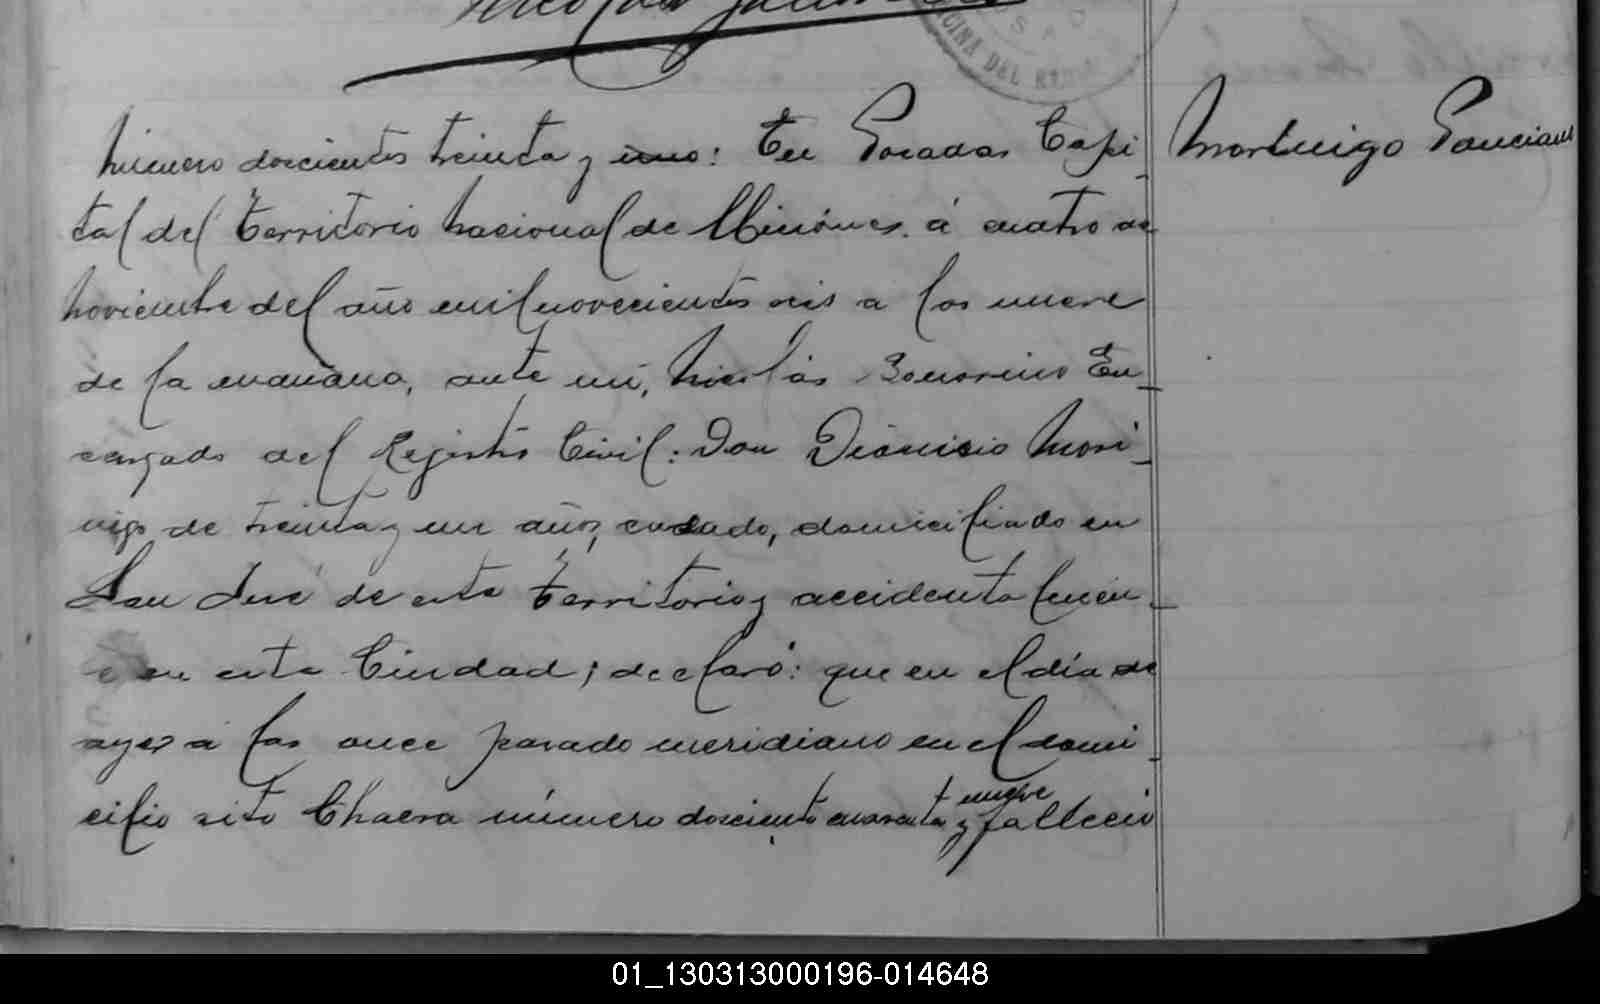 OFICINA DEL REGI
Número doscientos treinta y uno: En Posadas Capi
tal del Territorio Nacional de Misiones á cuatro de
Noviembre del año mil novecientos seis a las nueve
de la mañana, ante mí, Nicolás Bonorino En
cargado del Registro Civil: Don Dionisio Mori
nigo de treinta y un años, casado, domiciliado en
San José de este Territorio y accidentalmen
te en esta Ciudad; declaró: que en el día de
ayer á las once pasado meridiano en el domi
cilio sito Chacra número doscientos cuarenta y nueve falleció
Ponciano
01_130313000196-014648